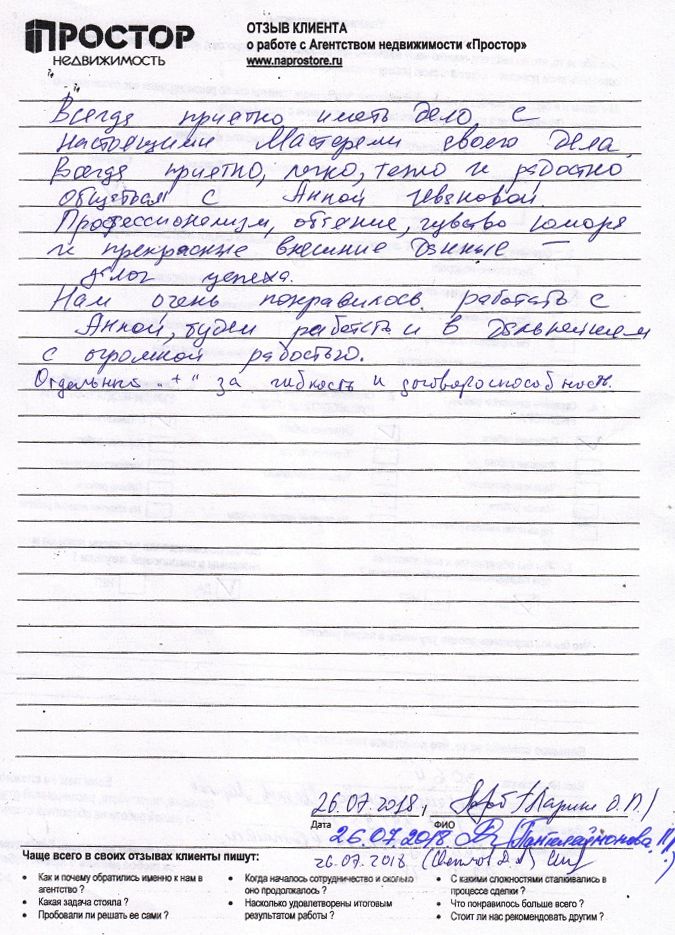 ПРОСТОР
НЕДВИЖИМОСТЬ
ОТЗЫВ КЛИЕНТА
о работе с Агентством недвижимости «Простор»
www.naprostore.ru
Всегда приятно иметь дело с
настоящими Мастерами своего дела.
Всегда приятно, легко, тепло и радостно
общаться с Анной Ивановой
Профессионализм, обаяние, чувство юмора
и прекрасные внешние данные –
залог успеха.
Нам очень понравилось работать с
Анной, будем работать и в дальнейшем
с огромной радостью.
Отдельный "+" за гибкость и договороспособность.
26.07.2018,
Дата
ФИО
26.07.2018 Пантелеймонова
26.07.2018
Чаще всего в своих отзывах клиенты пишут:
• Как и почему обратились именно к нам в агентство ?
• Какая задача стояла ?
• Пробовали ли решать ее сами ?
• Когда началось сотрудничество и сколько оно продолжалось ?
• Насколько удовлетворены итоговым результатом работы ?
• С какими сложностями сталкивались в процессе сделки ?
• Что понравилось больше всего ?
• Стоит ли нас рекомендовать другим ?